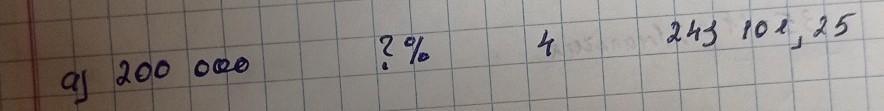 a) 200 000 ?% 4 243 101,25